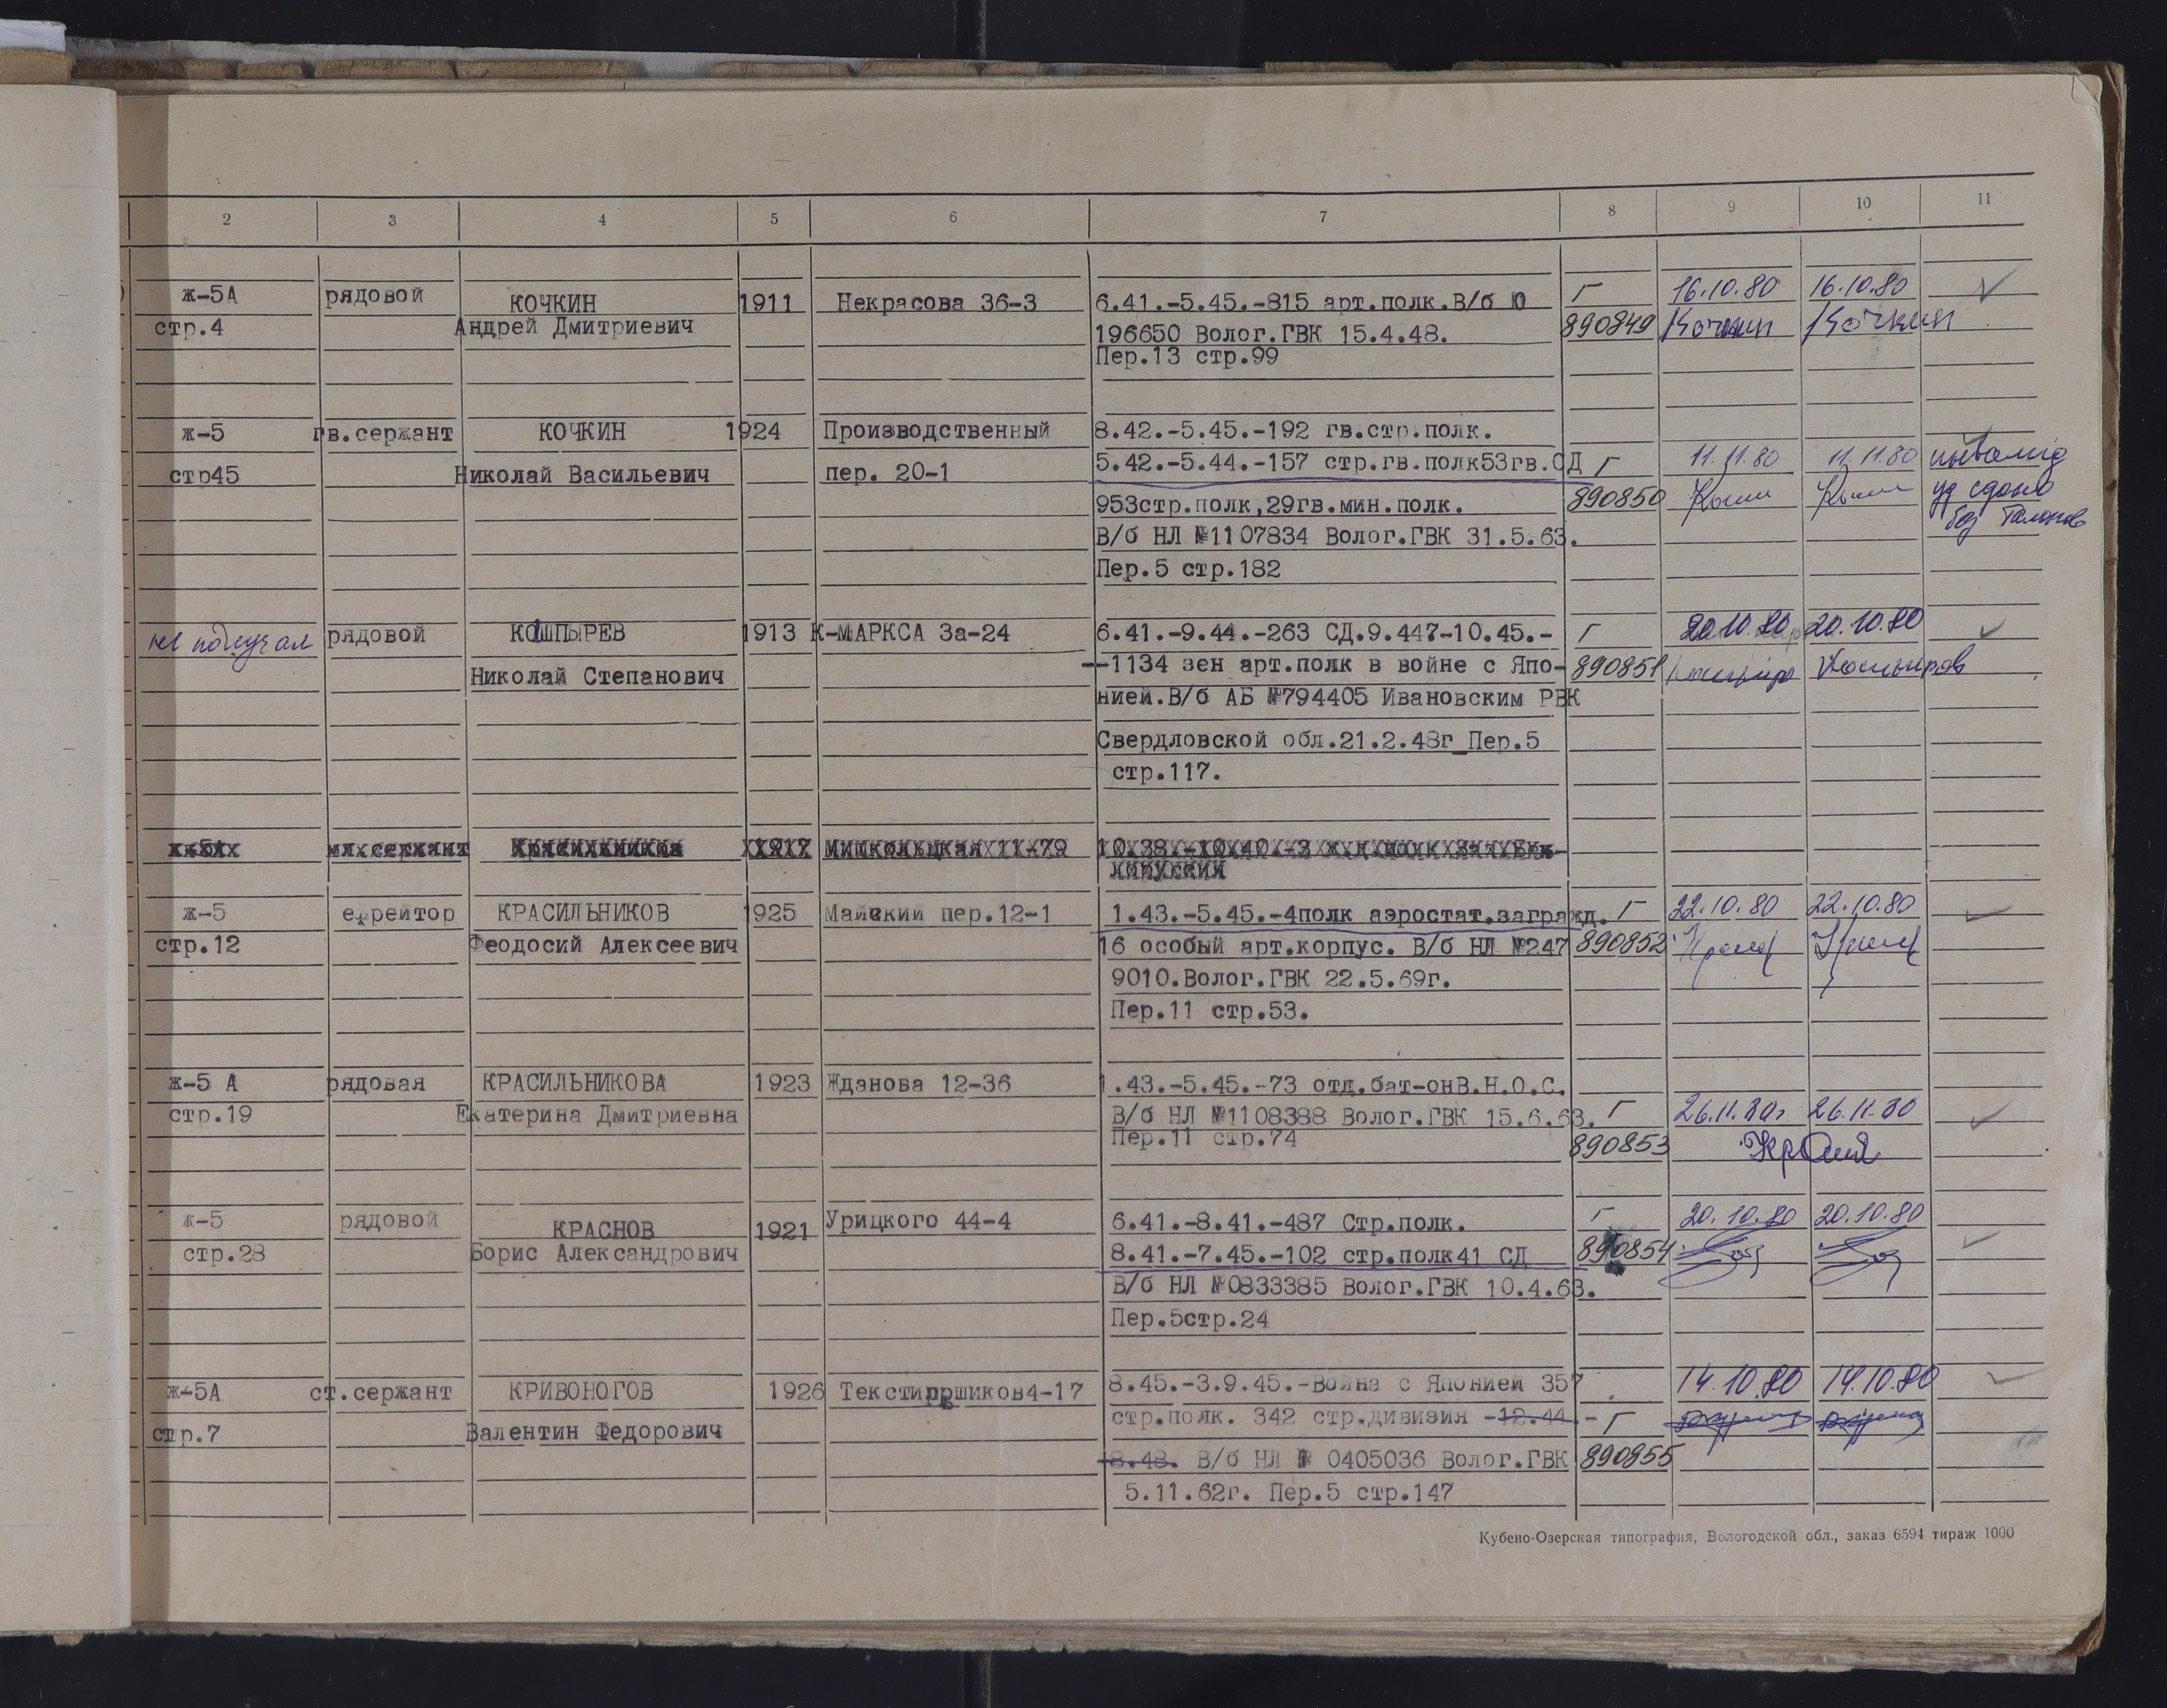 2 3 4 5 6 7 8 9 10 11
ж-5А рядовой КОЧКИН 1911 Некрасова 36-3 6.41.-5.45.-815 арт.полк.В/б Ю Г 16.10.80 16.10.80
стр.4 Андрей Дмитриевич 196650 Волог.ГВК 15.4.48. 890849 Кочкин Кочкин
Пер.13 стр.99
ж-5 гв.сержант КОЧКИН 1924 Производственный 8.42.-5.45.-192 гв.стр.полк.
стр45 Николай Васильевич пер. 20-1 5.42.-5.44.-157 стр.гв.полк53гв.СД Г 11.11.80 11.11.80
953стр.полк,29гв.мин.полк. 890850 уд сдано
В/б НЛ №1107834 Волог.ГВК 31.5.63. без талонов
Пер.5 стр.182
не получал рядовой КОШПЫРЕВ 1913 К-МАРКСА 3а-24 6.41.-9.44.-263 СД.9.447-10.45.- Г 20.10.80 20.10.80
Николай Степанович --1134 зен арт.полк в войне с Япо- 890851
нией.В/б АБ №794405 Ивановским РВК
Свердловской обл.21.2.48г_Пер.5
стр.117.
ж-5А мл.сержант Красильников 1917 Мишкольцкая 11-79
ж-5 ефрейтор КРАСИЛЬНИКОВ 1925 Майский пер.12-1 1.43.-5.45.-4полк аэростат.загражд. Г 22.10.80 22.10.80
стр.12 Феодосий Алексеевич 16 особый арт.корпус. В/б НЛ №247 890852
9010.Волог.ГВК 22.5.69г.
Пер.11 стр.53.
ж-5 А рядовая КРАСИЛЬНИКОВА 1923 Жданова 12-36 1.43.-5.45.-73 отд.бат-онВ.Н.О.С.
стр.19 Екатерина Дмитриевна В/б НЛ №1108388 Волог.ГВК 15.6.63. Г 26.11.80г 26.11.80
Пер.11 стр.74 890853
ж-5 рядовой КРАСНОВ 1921 Урицкого 44-4 6.41.-8.41.-487 Стр.полк. Г 20.10.80 20.10.80
стр.28 Борис Александрович 8.41.-7.45.-102 стр.полк41 СД 890854
В/б НЛ №0833385 Волог.ГВК 10.4.63.
Пер.5стр.24
ж-5А ст.сержант КРИВОНОГОВ 1926 8.45.-3.9.45.-Война с Японией 357 14.10.80 14.10.80
стр.7 Валентин Федорович стр.полк. 342 стр.дивизия -12.44.- Г
-8.48. В/б НЛ № 0405036 Волог.ГВК 890855
5.11.62г. Пер.5 стр.147
Кубено-Озерская типография, Вологодской обл., заказ 6594 тираж 1000